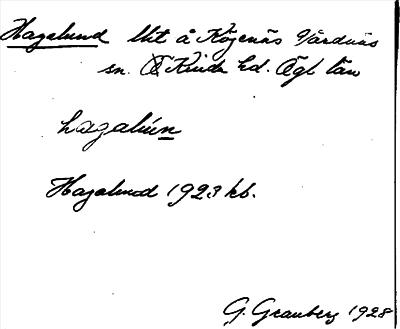 Hagalund lht å Kögenäs Vårdnäs
sn. Ö Kinda hd. Ögl län
hagalún
Hagalund 1923 kb.
G. Granberg 1928